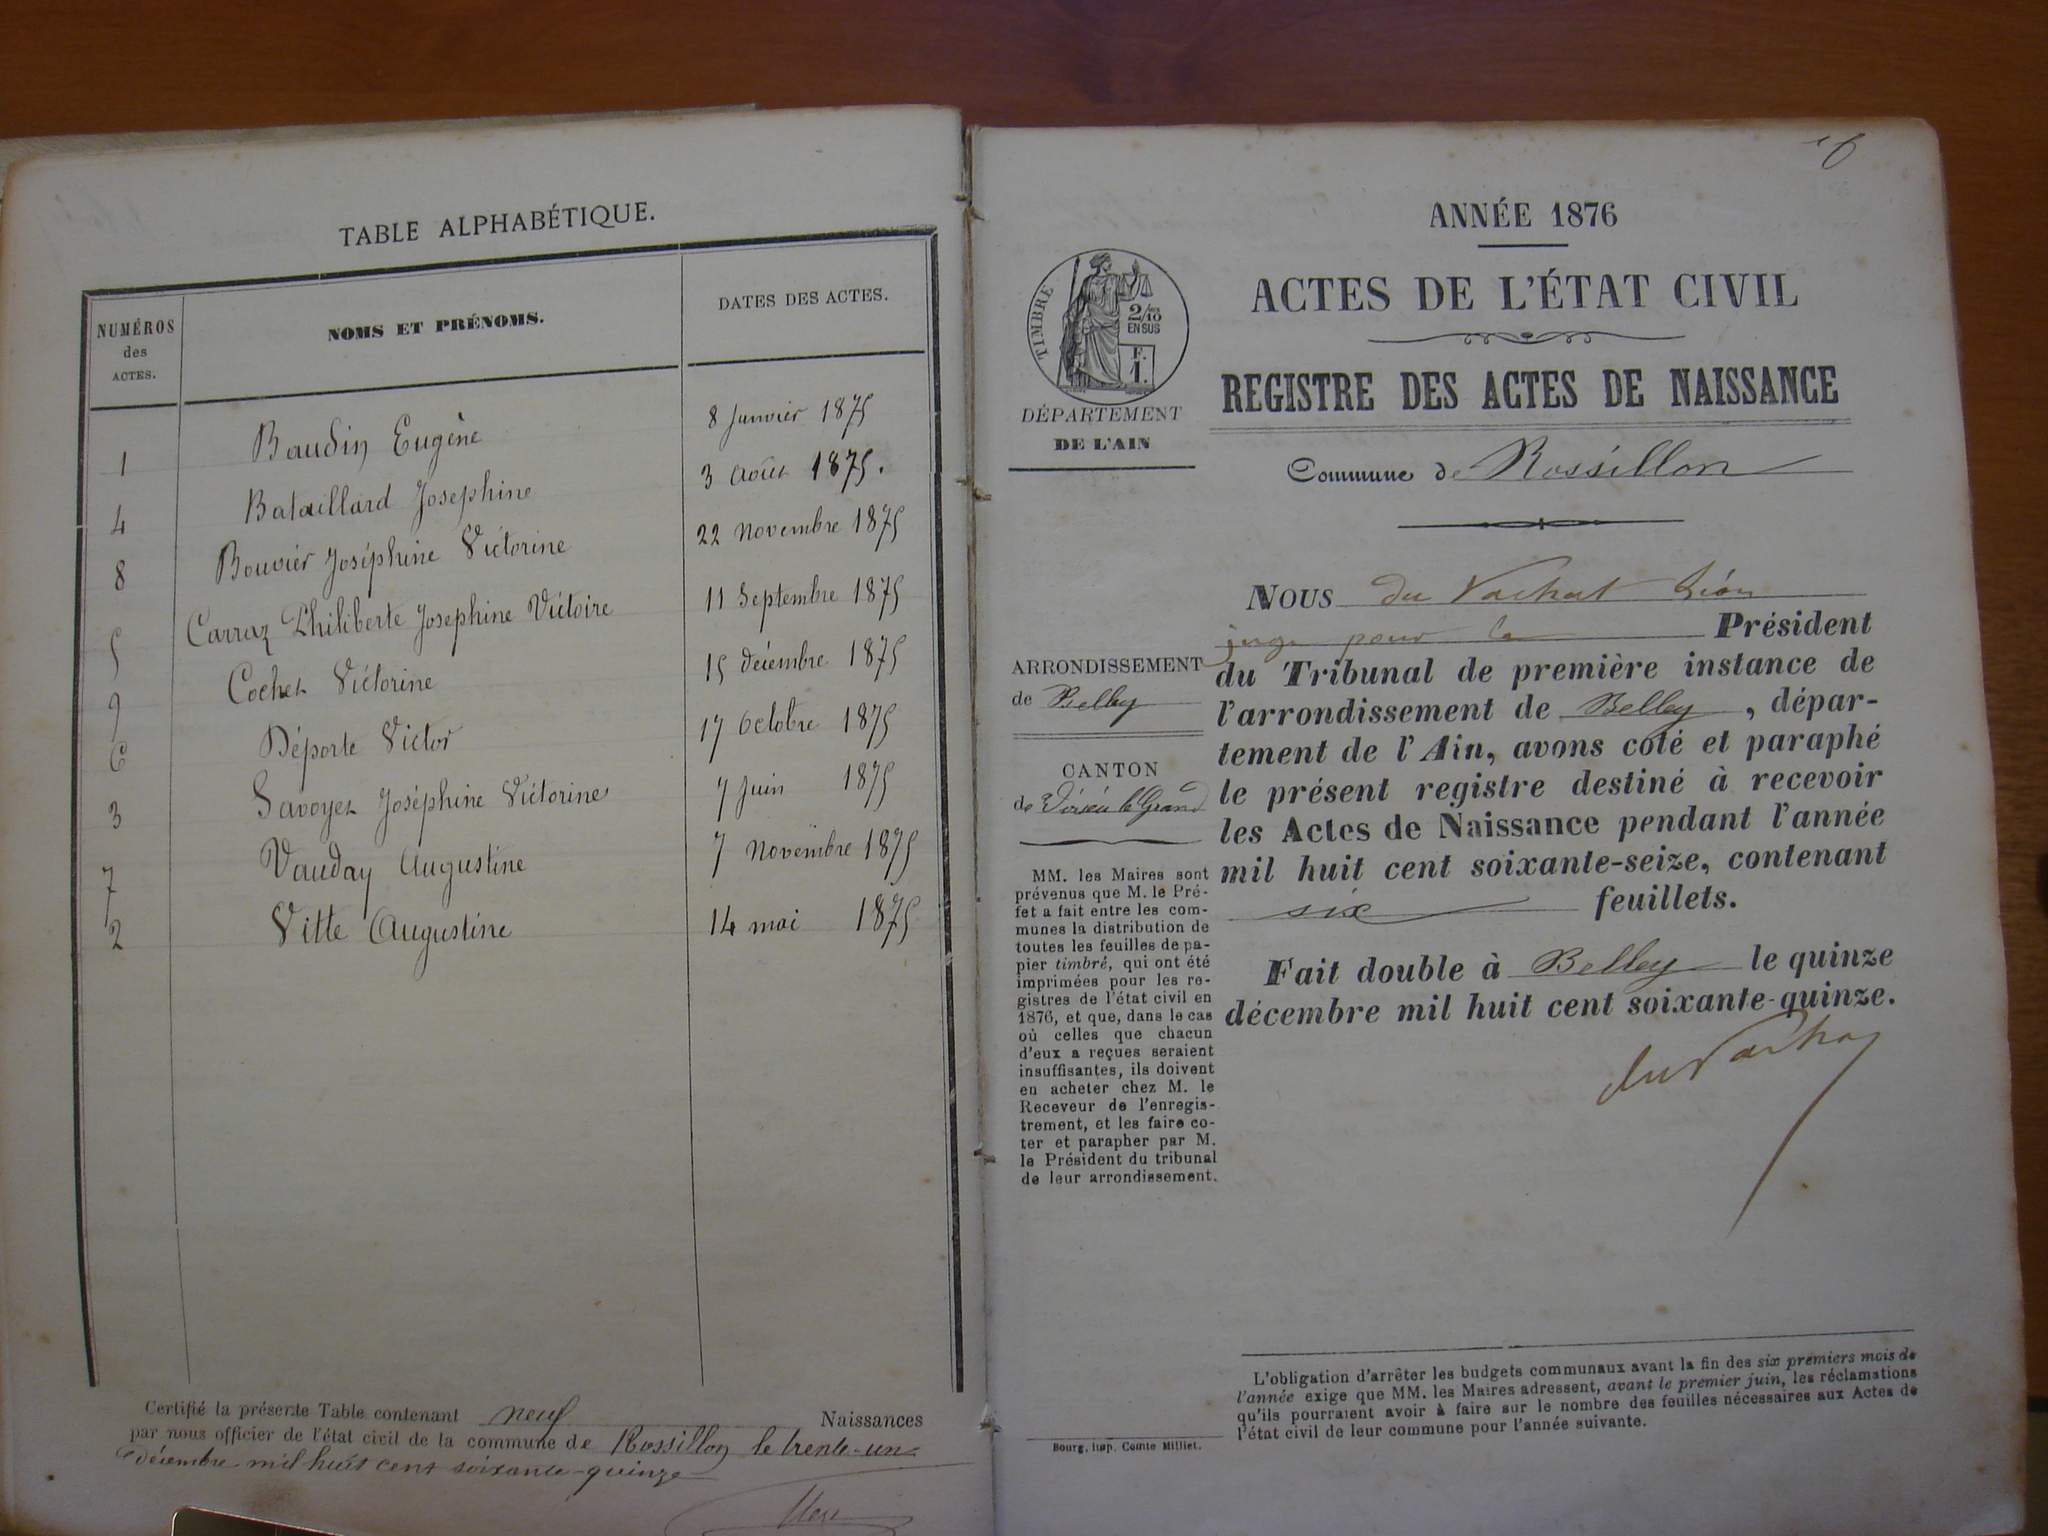 TABLE ALPHABÉTIQUE.
NUMÉROS
des
ACTES.
NOMS ET PRÉNOMS.
DATES DES ACTES.
1 Baudin Eugène 8 Janvier 1875
4 Bataillard Josephine 3 Août 1875.
8 Bouvier Joséphine Victorine 22 Novembre 1875
5 Carraz Philiberte Josephine Victoire 11 Septembre 1875
9 Cochet Victorine 15 décembre 1875
6 Déporte Victor 17 Octobre 1875
3 Savoyez Joséphine Victorine 7 Juin 1875
7 Vauday Augustine 7 Novembre 1875
2 Vitte Augustine 14 mai 1875
Certifié la présente Table contenant neuf Naissances
par nous officier de l'état civil de la commune de Rossillon le trente-un
décembre mil huit cent soixante-quinze
ANNÉE 1876
ACTES DE L'ÉTAT CIVIL
REGISTRE DES ACTES DE NAISSANCE
TIMBRE
2/10
EN SUS
F.
1.
DÉPARTEMENT
DE L'AIN
Commune de Rossillon
ARRONDISSEMENT
de Belley
CANTON
de Virieu le Grand
MM. les Maires sont
prévenus que M. le Pré-
fet a fait entre les com-
munes la distribution de
toutes les feuilles de pa-
pier timbré, qui ont été
imprimées pour les re-
gistres de l'état civil en
1876, et que, dans le cas
où celles que chacun
d'eux a reçues seraient
insuffisantes, ils doivent
en acheter chez M. le
Receveur de l'enregis-
trement, et les faire co-
ter et parapher par M.
le Président du tribunal
de leur arrondissement.
NOUS du Vachat Léon
juge pour le Président
du Tribunal de première instance de
l'arrondissement de Belley, dépar-
tement de l'Ain, avons coté et paraphé
le présent registre destiné à recevoir
les Actes de Naissance pendant l'année
mil huit cent soixante-seize, contenant
six feuillets.
Fait double à Belley le quinze
décembre mil huit cent soixante-quinze.
du Vachat
L'obligation d'arrêter les budgets communaux avant la fin des six premiers mois de
l'année exige que MM. les Maires adressent, avant le premier juin, les réclamations
qu'ils pourraient avoir à faire sur le nombre des feuilles nécessaires aux Actes de
l'état civil de leur commune pour l'année suivante.
Bourg, imp. Comte Milliet.